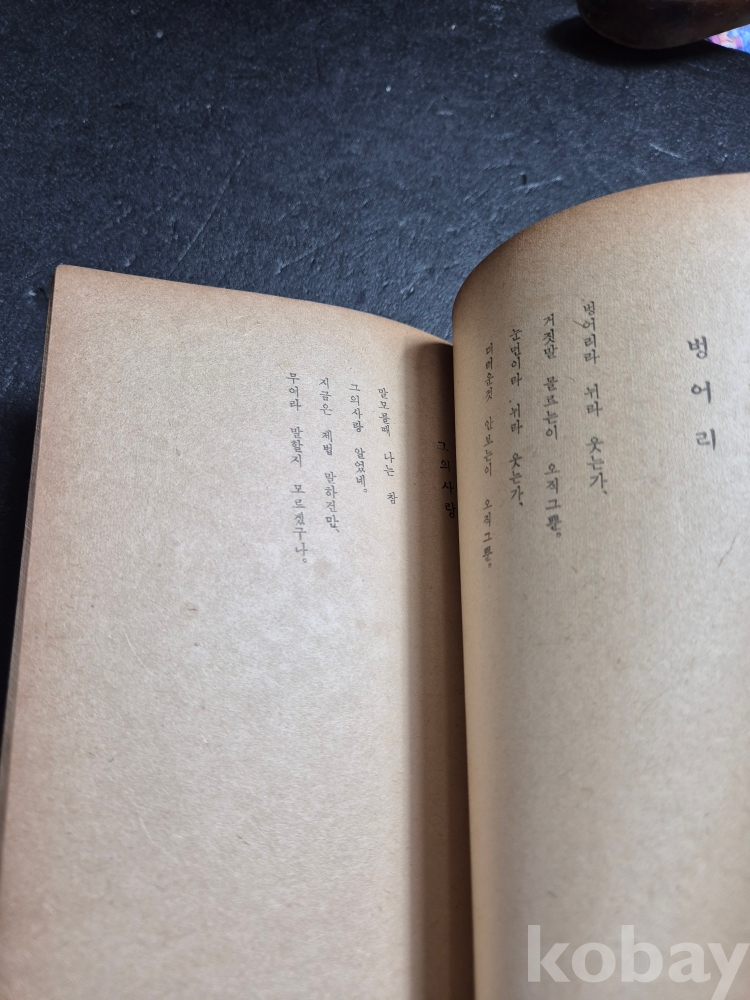 벙어리
벙어리라 뉘라 웃는가,
거짓말 몰르는이 오직그뿐。
눈먼이라 뉘라 웃는가,
미러운것 안보는이 오직그뿐。
그의사랑
말모를때 나는 참
그의사랑 알었네。
지금은 제법 말하건만,
무어라 말할지 모르겠구나。
kobay